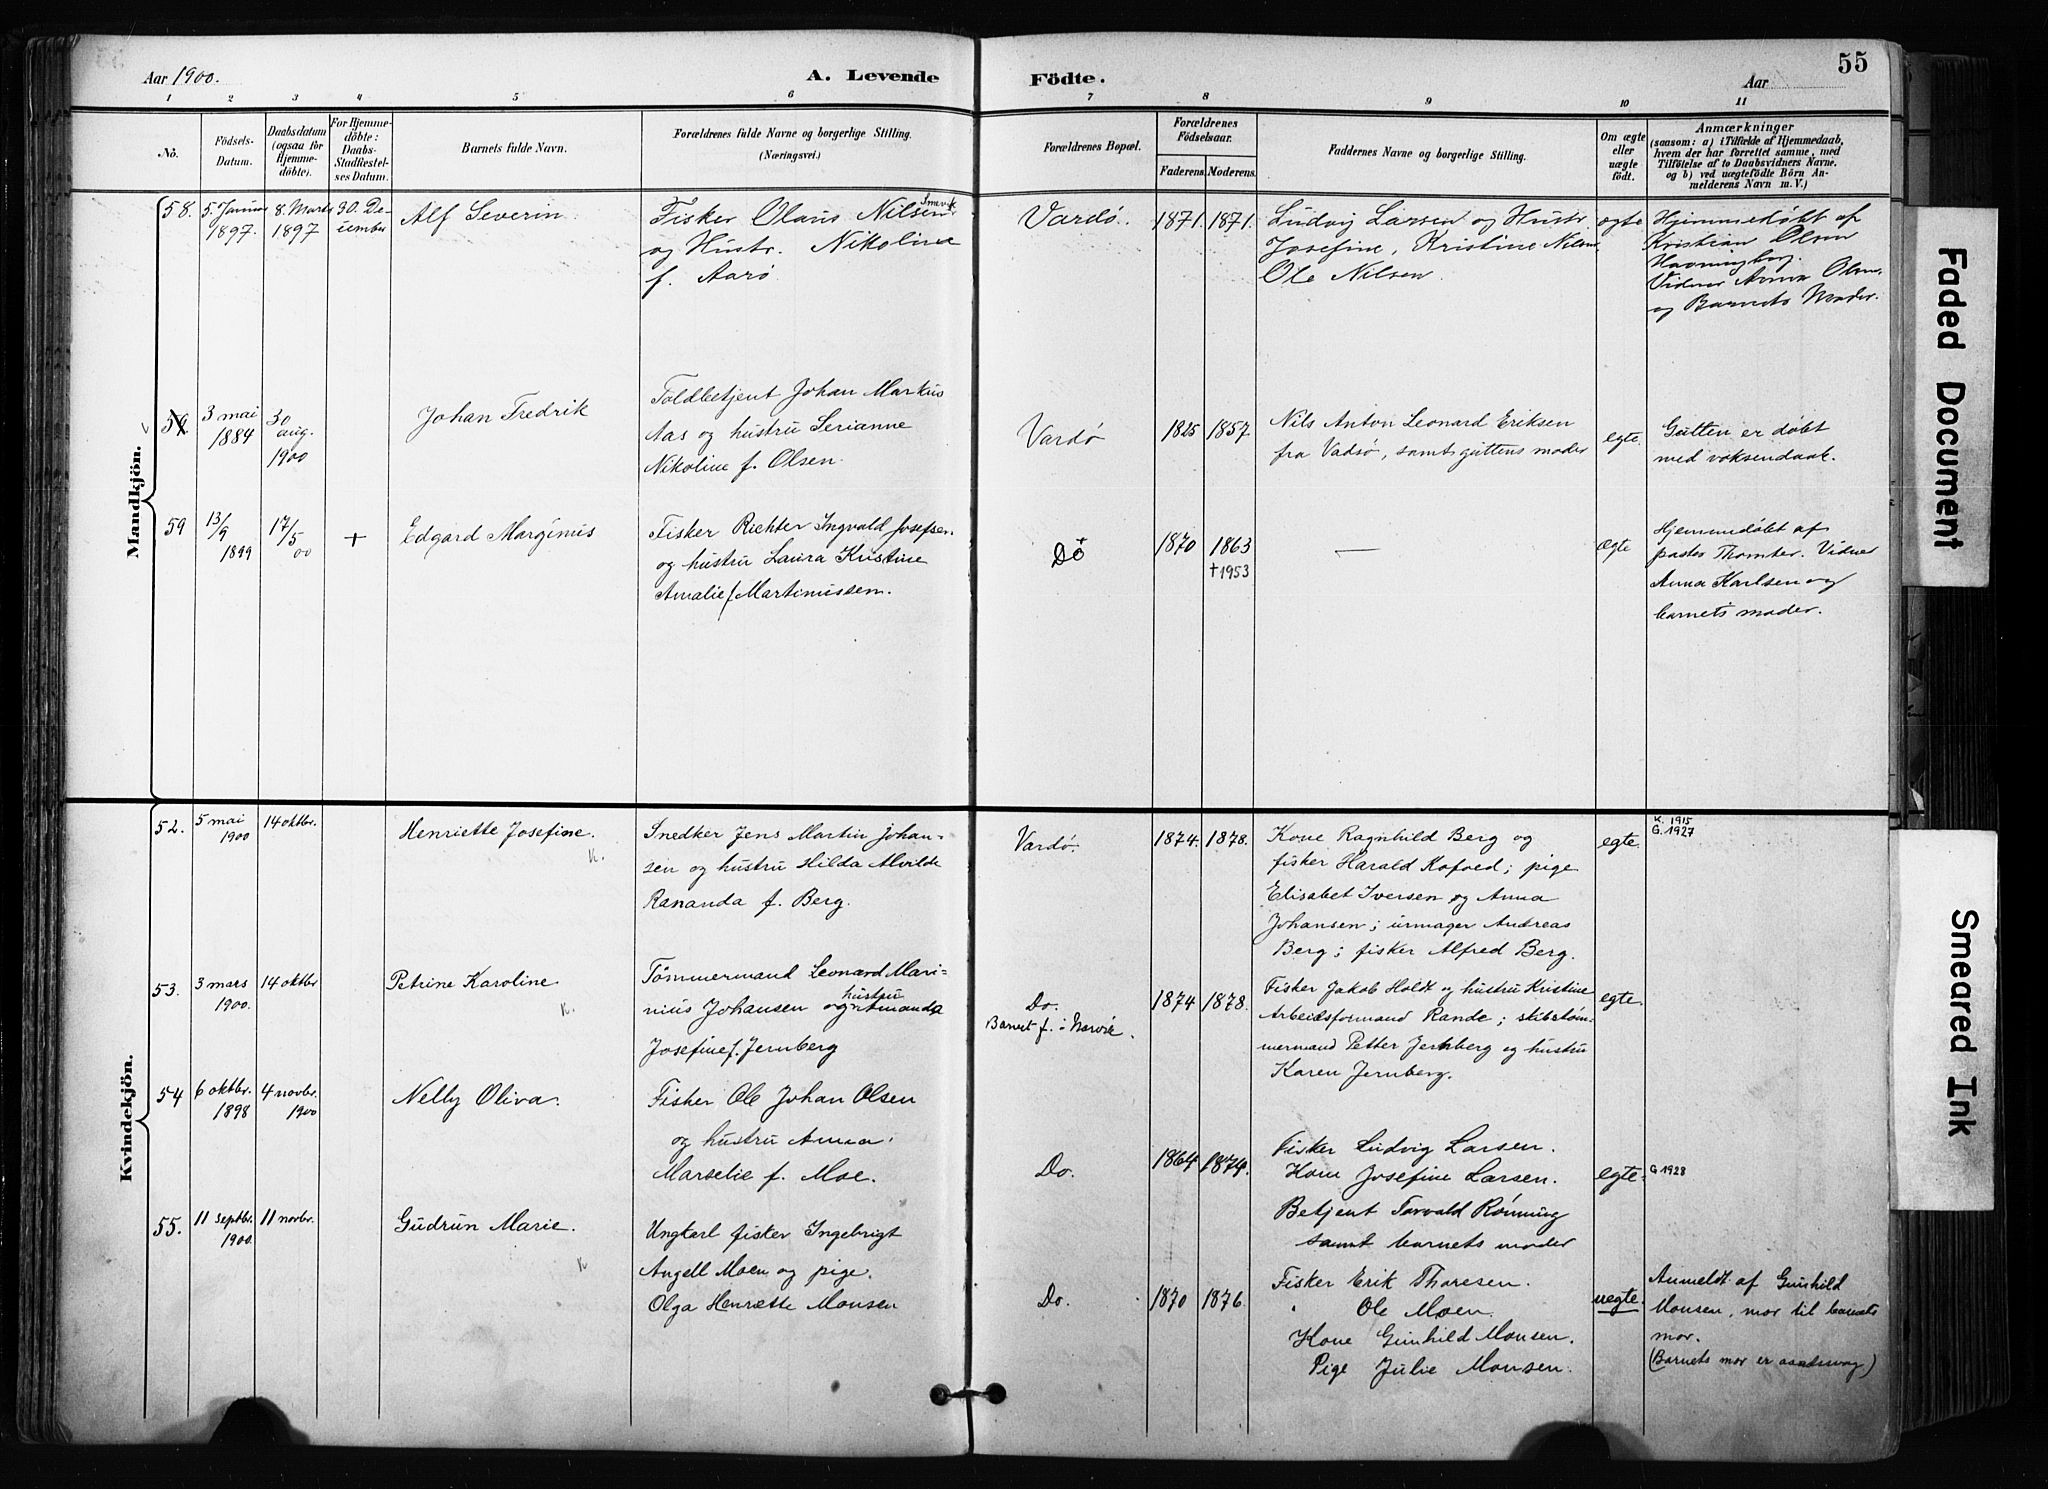 Aar 1900.
A. Levende Födte.
Aar
55
1 2 3 4 5 6 7 8 9 10 11
No.
Födsels-Datum.
Daabsdatum (ogsaa for Hjemmedöbte).
For Hjemmedöbte: Daabs-Stadfæstelses Datum.
Barnets fulde Navn.
Forældrenes fulde Navne og borgerlige Stilling. (Næringsvei.)
Forældrenes Bopæl.
Forældrenes Födselsaar.
Faderens. Moderens.
Faddernes Navne og borgerlige Stilling.
Om ægte eller uægte födt.
Anmærkninger
(saasom: a) i Tilfælde af Hjemmedaab, hvem der har forrettet samme, med Tilföielse af to Daabsvidners Navne. og b) ved uægtefödte Börn Anmelderens Navn m. V.)
Mandkjön.
58. 5. Januar 1897. 8. Marts 1897 30. December
Alf Severin
Fisker Olaus Nilsen
og Hustr. Nikoline
f. Aarø
Vardø. 1871. 1871.
Ludvig Larsen og Hustr.
Josefine, Kristine Nilsen
Ole Nilsen.
ægte
Hjemmedøbt af
Kristian Olsen
Vidner Anna Olsen
og Barnets Moder.
3 mai 1884 30 aug. 1900
Johan Fredrik
Toldbetjent Johan Markus
Aas og hustru Serianne
Nikoline f. Olsen.
Vardø 1825 1857
Nils Anton Leonard Eriksen
fra Vadsø, samt guttens moder
egte.
Gutten er døbt
med voksendaab.
59 13/9 1899 17/5 00 +
Edgard Marginus
Fisker Richter Ingvald Josefsen
og hustru Laura Kristine
Amalie f. Martinussen.
Do 1870 1863
† 1953
—
ægte
Hjemmedøbt af
pastor Thomter. Vidner
Anna Karlsen og
barnets moder.
Kvindekjön.
52. 5 mai 1900 14 oktbr.
Henriette Josefine.
K.
Snedker Jens Martin Johan-
sen og hustru Hilda Alvilde
Rananda f. Berg.
Vardø. 1874. 1878.
Kone Ragnhild Berg og
fisker Harald Kofoed; pige
Elisabet Iversen og Anna
Johansen; urmager Andreas
Berg; fisker Alfred Berg.
egte.
K. 1915
G. 1927
53. 3 mars 1900. 14 oktbr
Petrine Karoline
K.
Tömmermand Leonard Mari-
nius Johansen og hustru Amanda
Josefine f. Jernberg
Do.
Barnet f. i Narvik.
1874 1878.
Fisker Jakob Holdt og hustru Kristine
Arbeidsformand Rande; skibstøm-
mermand Petter Jernberg og hustru
Karen Jernberg.
egte
54 6 oktbr. 1898 4 novbr. 1900
Nelly Oliva.
Fisker Ole Johan Olsen
og hustru Anna
Marselie f. Moe.
Do. 1864 1874.
Fisker Ludvig Larsen.
Kone Josefine Larsen.
Betjent Torvald Rønning
samt barnets moder
egte.
G 1928
55. 11 septbr. 1900. 11 novbr.
Gudrun Marie.
K
Ungkarl fisker Ingebrigt
Angell Moen og pige
Olga Henrette Monsen
Do. 1870 1876.
Fisker Erik Thoresen.
" Ole Moen.
Kone Gunhild Monsen.
Pige Julie Monsen.
uegte.
Anmeldt af Gunhild
Monsen, mor til barnets
mor.
(Barnets mor er aandssvag)
Faded Document
Smeared Ink